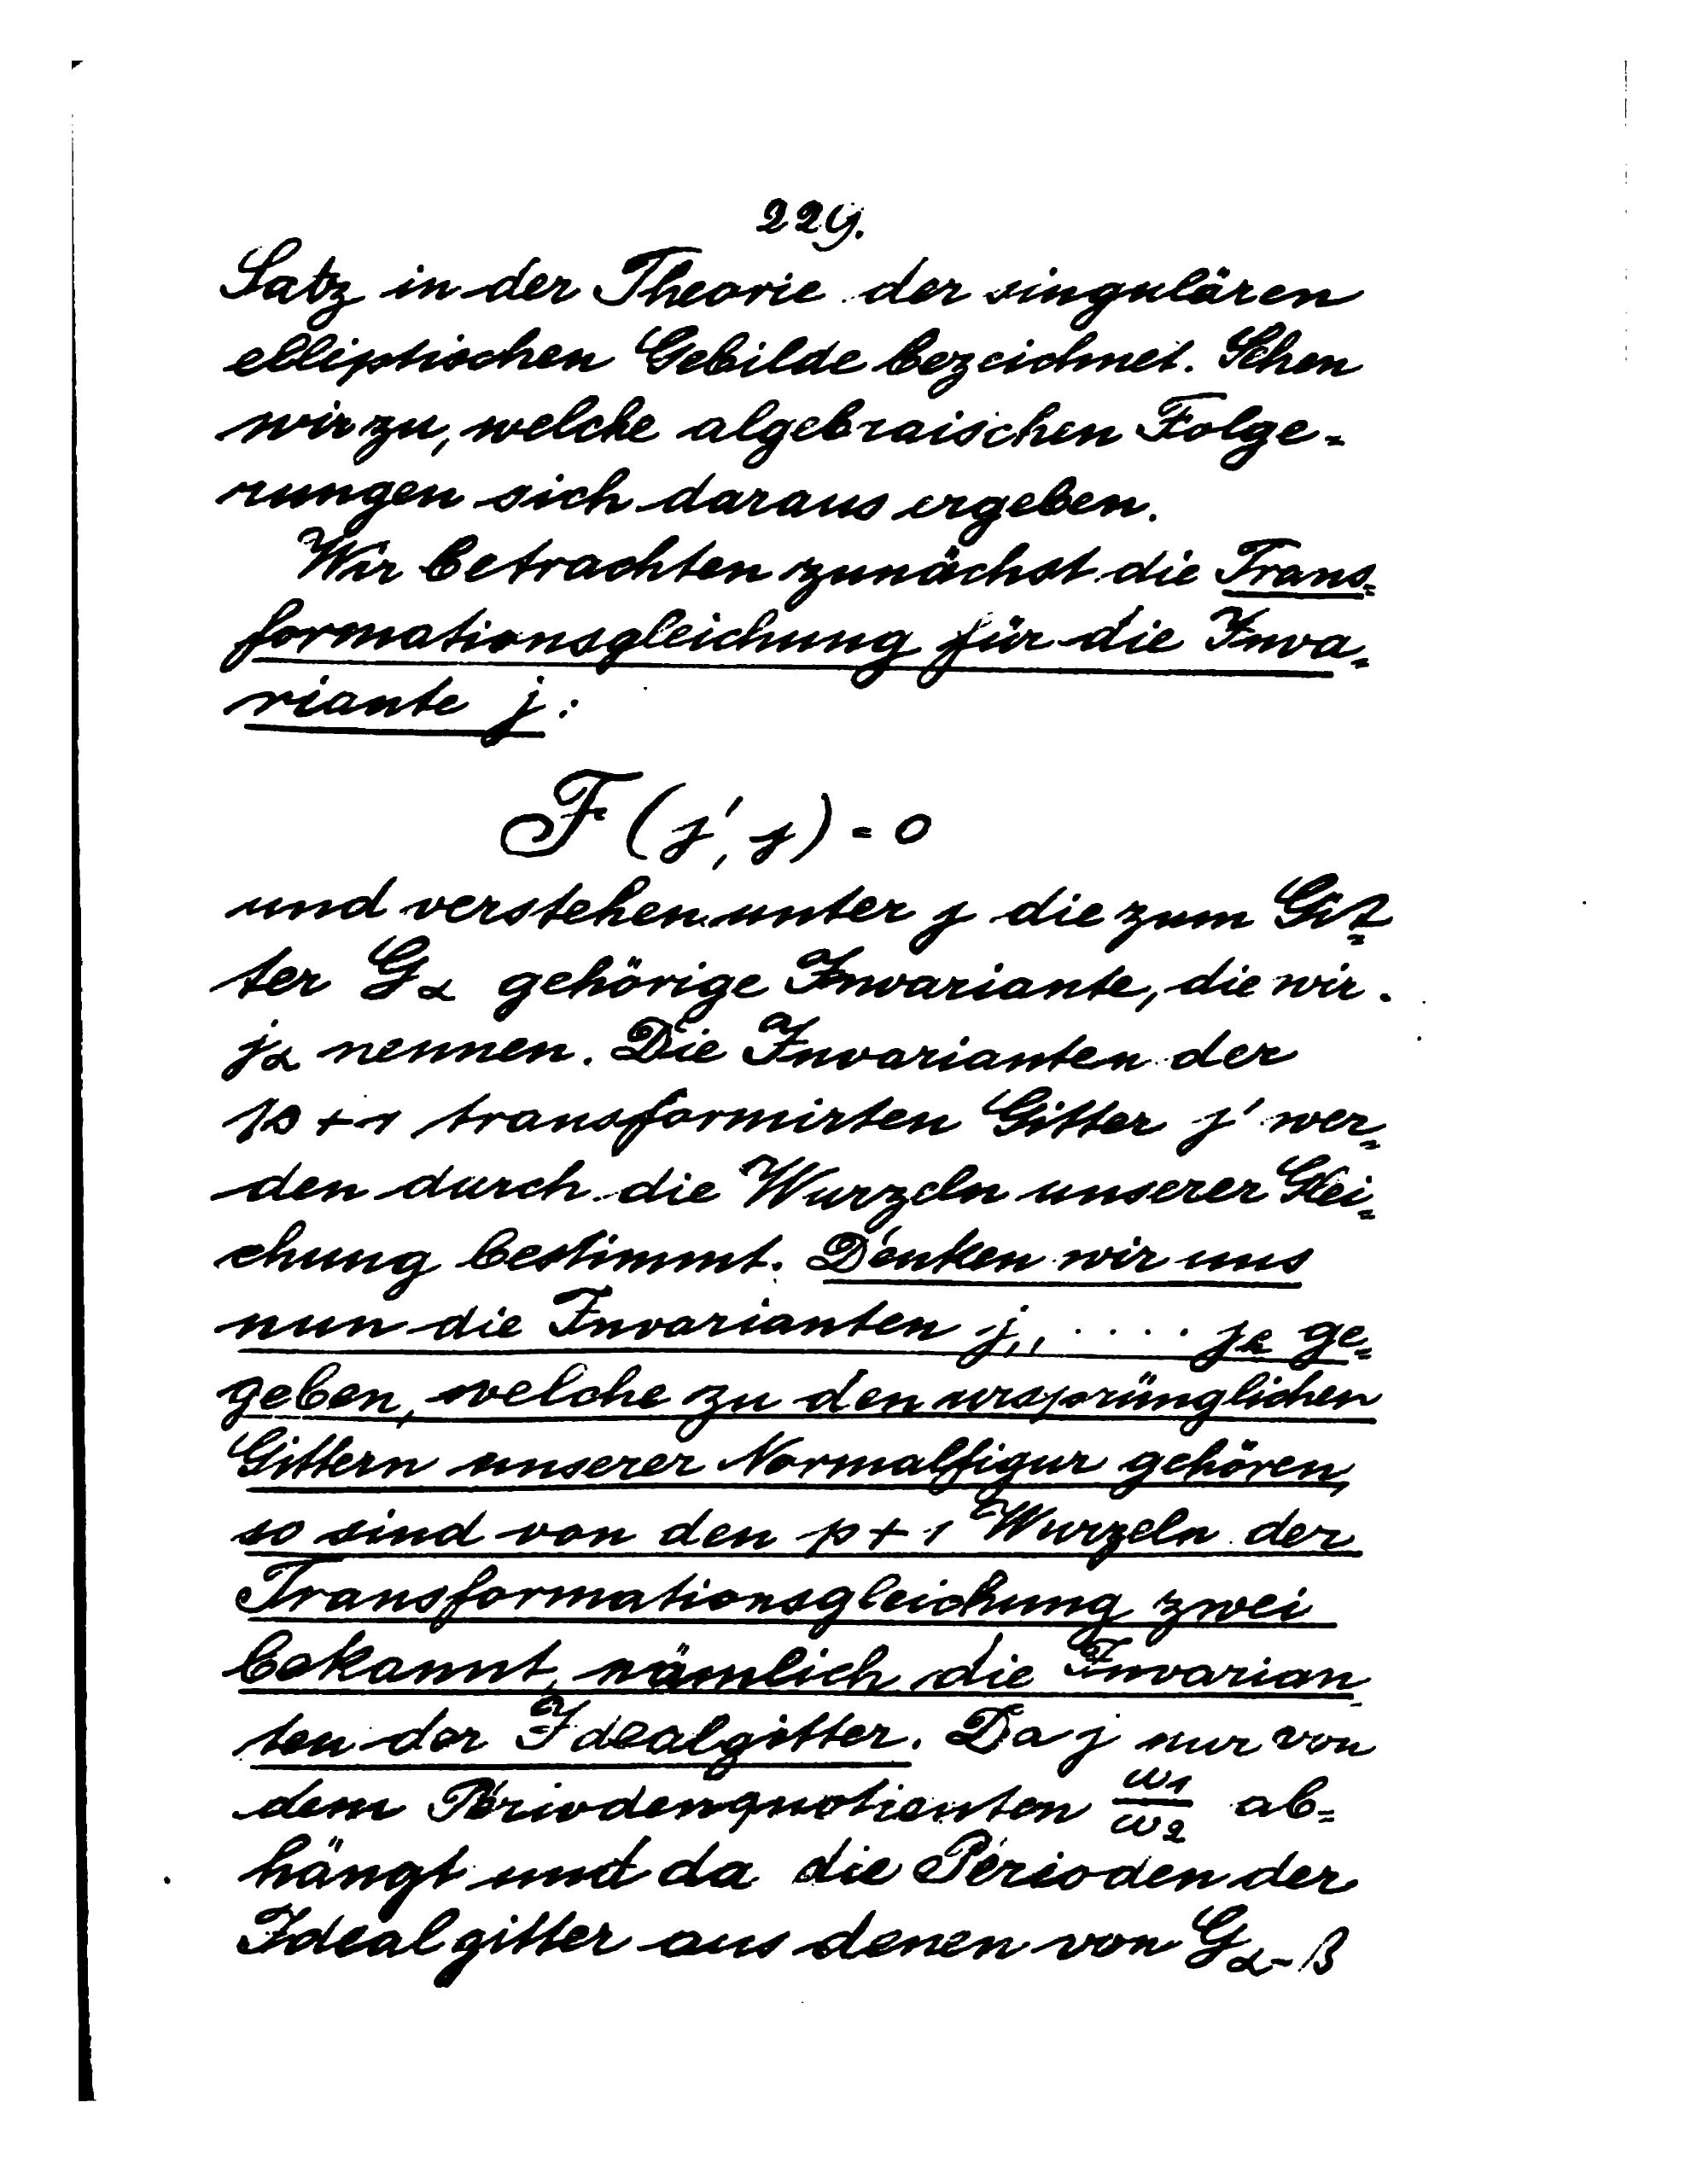 229.
Satz in der Theorie der singulären
elliptischen Gebilde bezeichnet. Sehen
wir zu, welche algebraischen Folge=
rungen sich daraus ergeben.
Wir betrachten zunächst die Trans=
formationsgleichung für die Inva=
riante j:
F(j', j) = 0
und verstehen unter j die zum Git=
ter Gα gehörige Invariante, die wir
jα nennen. Die Invarianten der
p+1 transformirten Gitter j' wer=
den durch die Wurzeln unserer Glei=
chung bestimmt. Denken wir uns
nun die Invarianten j₁, . . . . jh ge=
geben, welche zu den ursprünglichen
Gittern unserer Normalfigur gehören,
so sind von den p+1 Wurzeln der
Transformationsgleichung zwei
bekannt, nämlich die Invarian=
ten der Idealgitter. Da j nur von
dem Periodenquotienten ω1/ω2 ab=
hängt und da die Perioden der
Idealgitter aus denen von Gα-β